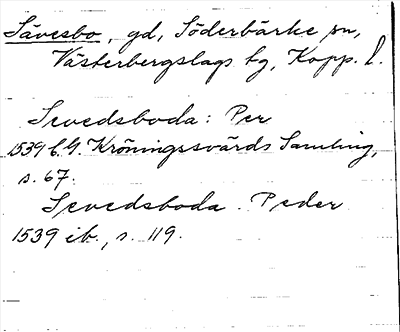 Sävesbo, gd, Söderbärke sn,
Västerbergslags tg, Kopp. l.
Sevedsboda: Per
1539 C.G. Kröningssvärds Samling,
s. 67.
Sevedsboda. Peder
1539 ib., s. 119.